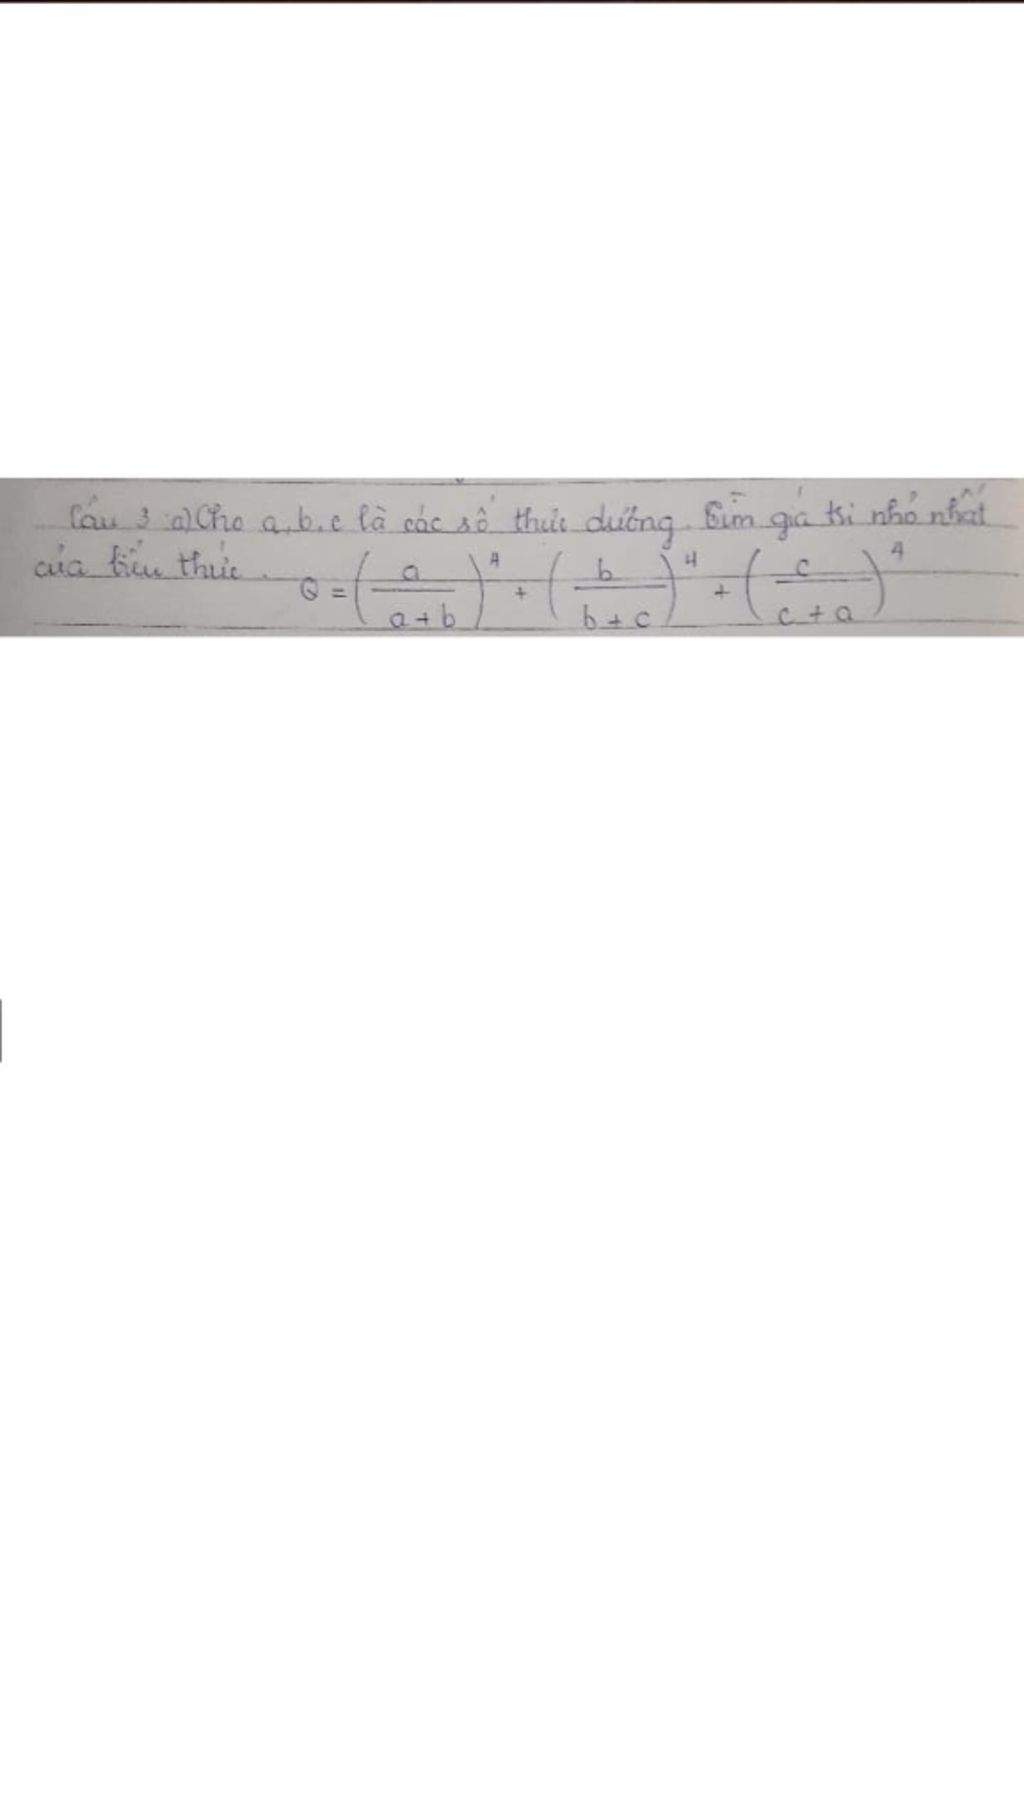 Câu 3 a) Cho a, b, c là các số thực dương. Tìm giá trị nhỏ nhất
của biểu thức. Q = (a/(a+b))^4 + (b/(b+c))^4 + (c/(c+a))^4